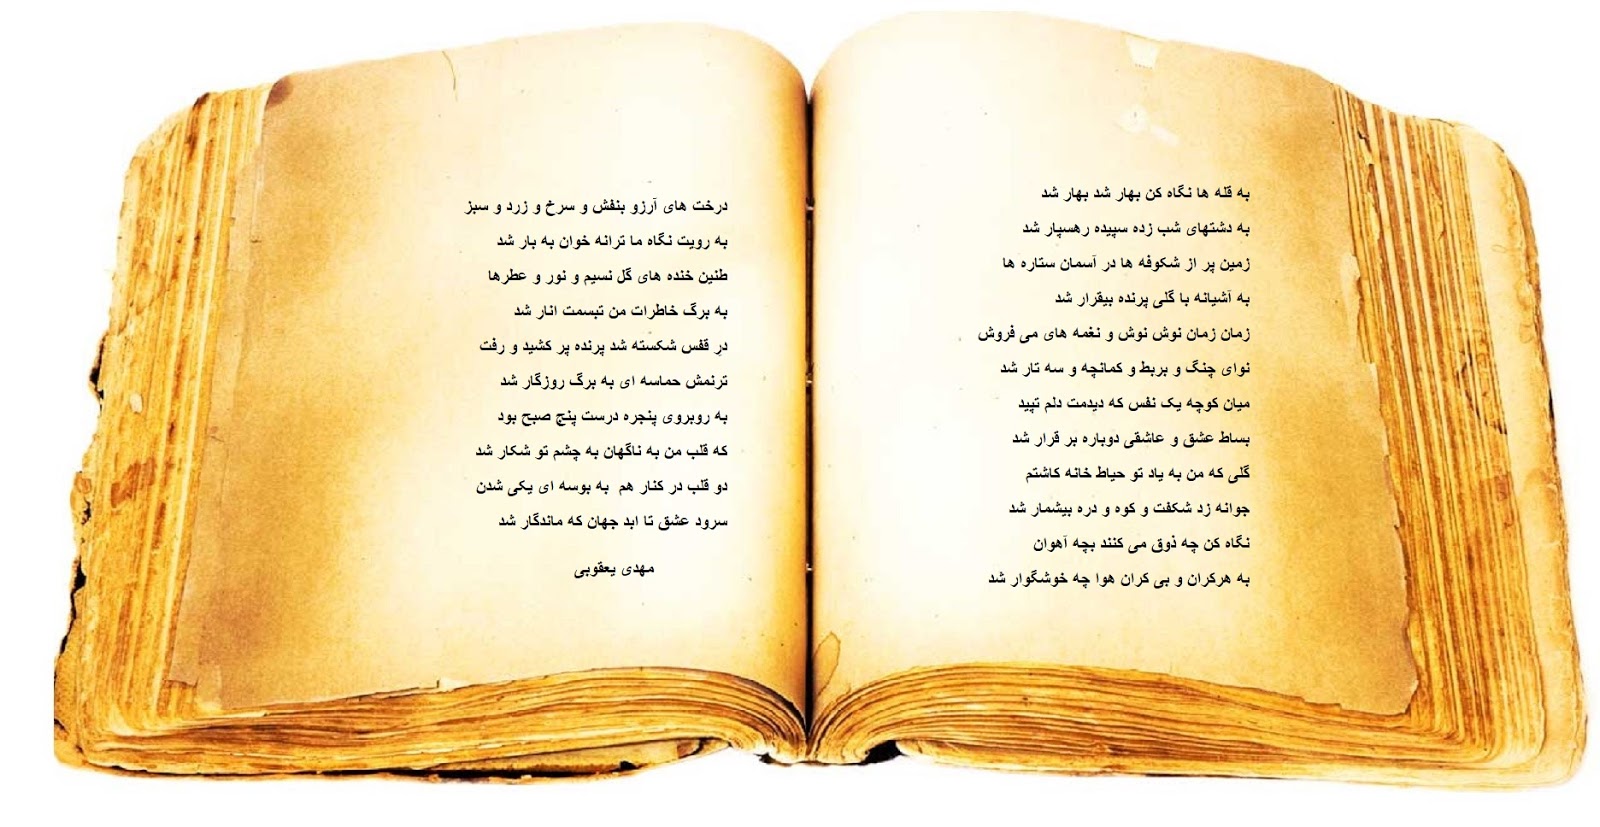 به قله ها نگاه کن بهار شد بهار شد
به دشتهای شب زده سپیده رهسپار شد
زمین پر از شکوفه ها در آسمان ستاره ها
به آشیانه با گلی پرنده بیقرار شد
زمان زمان نوش نوش و نغمه های می فروش
نوای چنگ و بربط و کمانچه و سه تار شد
میان کوچه یک نفس که دیدمت دلم تپید
بساط عشق و عاشقی دوباره بر قرار شد
گلی که من به یاد تو حیاط خانه کاشتم
جوانه زد شکفت و کوه و دره بیشمار شد
نگاه کن چه ذوق می کنند بچه آهوان
به هرکران و بی کران هوا چه خوشگوار شد
درخت های آرزو بنفش و سرخ و زرد و سبز
به رویت نگاه ما ترانه خوان به بار شد
طنین خنده های گل نسیم و نور و عطرها
به برگ خاطرات من تبسمت انار شد
درِ قفس شکسته شد پرنده پر کشید و رفت
ترنمش حماسه ای به برگ روزگار شد
به روبروی پنجره درست پنج صبح بود
که قلب من به ناگهان به چشم تو شکار شد
دو قلب در کنار هم به بوسه ای یکی شدن
سرود عشق تا ابد جهان که ماندگار شد
مهدی یعقوبی